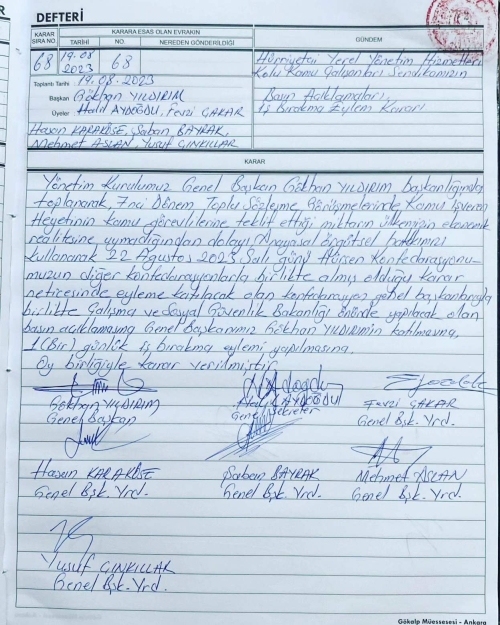 DEFTERİ
KARAR SIRA NO.
KARARA ESAS OLAN EVRAKIN
TARİHİ
NO.
NEREDEN GÖNDERİLDİĞİ
GÜNDEM
68
19.08 2023
68
Toplantı Tarihi 19.08.2023
Başkan Gökhan YILDIRIM
Üyeler Halil AYDOĞDU, Fevzi ÇAKAR
Hasan KARAKÖSE, Şaban BAYRAK,
Mehmet ASLAN, Yusuf ÇINKILLAR
Hürriyetçi Yerel Yönetim Hizmetleri
Kolu Kamu Çalışanları Sendikamızın
Basın Açıklamaları,
İş Bırakma Eylem Kararı
KARAR
Yönetim Kurulumuz Genel Başkan Gökhan YILDIRIM, başkanlığında
toplanarak, 7.nci Dönem Toplu Sözleşme Görüşmelerinde Kamu İşveren
Heyetinin kamu görevlilerine teklif ettiği miktarın ülkemizin ekonomik
realitesine uymadığından dolayı Anayasal örgütsel hakkımızı
kullanarak 22 Ağustos 2023 Salı günü Hürsen Konfederasyonu-
muzun diğer konfederasyonlarla birlikte almış olduğu karar
neticesinde eyleme katılacak olan konfederasyon genel başkanlarıyla
birlikte Çalışma ve Sosyal Güvenlik Bakanlığı önünde yapılacak olan
basın açıklamasına Genel Başkanımız Gökhan YILDIRIMın katılmasına,
1 (Bir) günlük iş bırakma eylemi yapılmasına,
Oy birliğiyle karar verilmiştir.
Gökhan YILDIRIM
Genel Başkan
Halil AYDOĞDU
Genel Sekreter
Fevzi ÇAKAR
Genel Bşk. Yrd.
Hasan KARAKÖSE
Genel Bşk. Yrd.
Şaban BAYRAK
Genel Bşk. Yrd.
Mehmet ASLAN
Genel Bşk. Yrd.
Yusuf ÇINKILLAR
Genel Bşk. Yrd.
Gökalp Müessesesi - Ankara